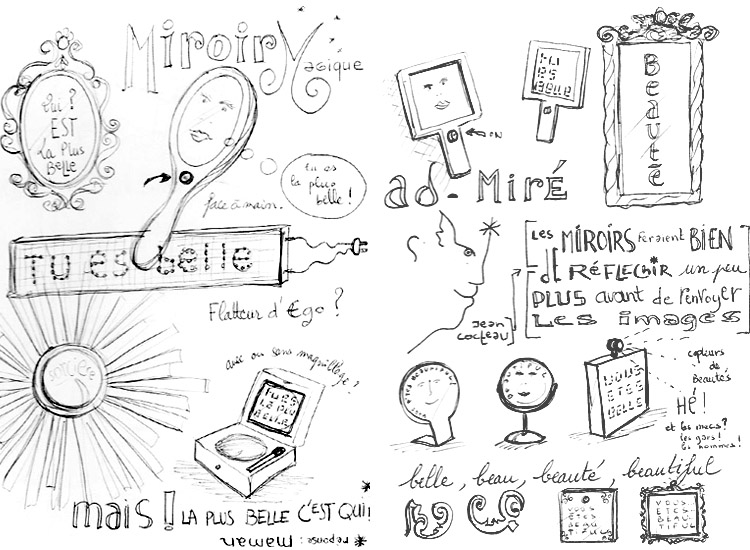 Miroir Magique
Qui ?
EST
La Plus
BELLE
tu es
la plus
belle !
face à main.
Tu es belle
Flatteur d'Ego ?
avec ou sans maquillage ?
TU ES
LA PLU
BELLE
mais ! LA PLUS BELLE C'EST QUI !
* réponse : maman
ON
TU
ES
BELLE
Beauté
ad-Miré
Les MIROIRS feraient BIEN
de RÉFLÉCHIR un peu
PLUS avant de renvoyer
Les images
Jean
Cocteau
VOUS
ETES
BELLE
capteurs
de
Beautés
HÉ !
et les mecs ?
les gars !
les hommes !
belle, beau, beauté, beautiful
VOUS
ETES
BEAU
TIFUL
VOUS
ETES
BEAU
TIFUL